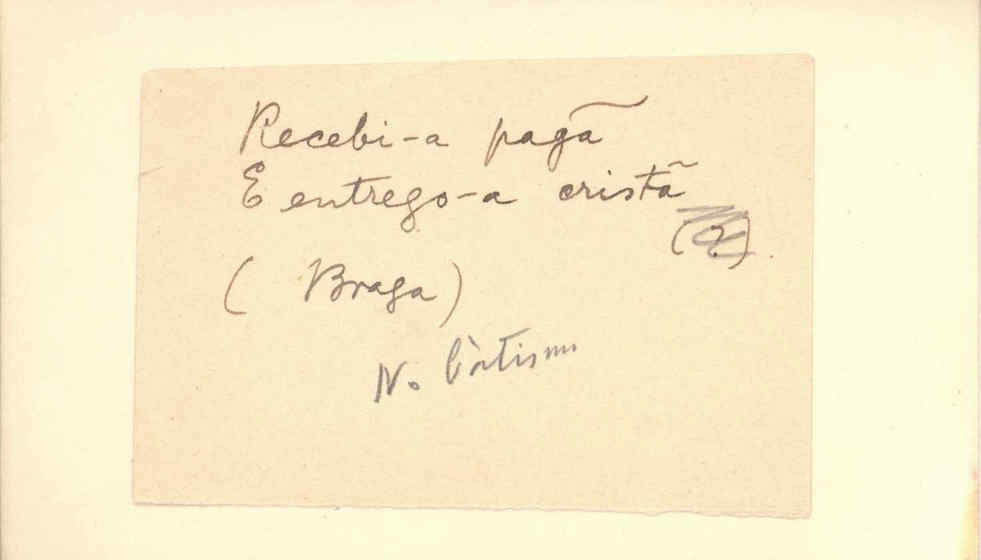 Recebi-a pagã
E entrego-a cristã
(?).
(Braga)
No bàtismo